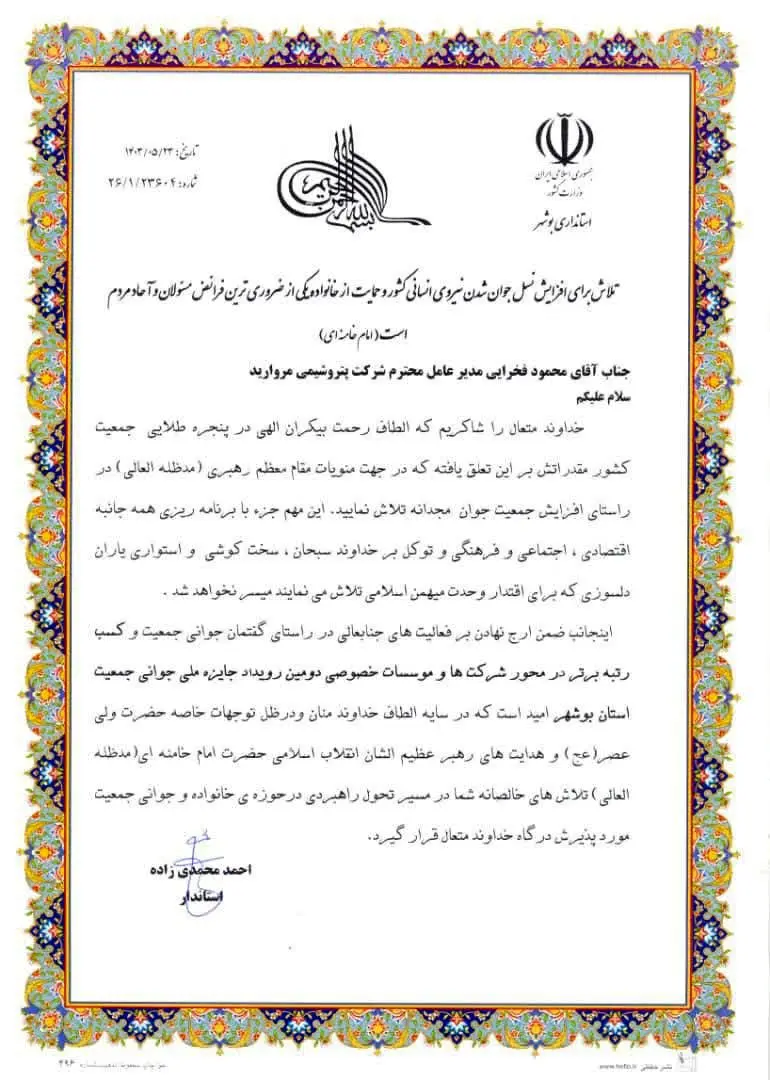 جمهوری اسلامی ایران
وزارت کشور
استانداری بوشهر
بسم الله الرحمن الرحیم
تاریخ: ۱۴۰۳/۰۵/۲۳
شماره: ۲۶/۱/۲۳۶۰۴
تلاش برای افزایش نسل جوان شدن نیروی انسانی کشور و حمایت از خانواده یکی از ضروری ترین فرائض مسئولان و آحاد مردم
است (امام خامنه ای)
جناب آقای محمود فخرایی مدیر عامل محترم شرکت پتروشیمی مروارید
سلام علیکم
خداوند متعال را شاکریم که الطاف رحمت بیکران الهی در پنجره طلایی جمعیت
کشور مقدراتش بر این تعلق یافته که در جهت منویات مقام معظم رهبری (مدظله العالی) در
راستای افزایش جمعیت جوان مجدانه تلاش نمایید. این مهم جزء با برنامه ریزی همه جانبه
اقتصادی ، اجتماعی و فرهنگی و توکل بر خداوند سبحان ، سخت کوشی و استواری یاران
دلسوزی که برای اقتدار وحدت میهمن اسلامی تلاش می نمایند میسر نخواهد شد .
اینجانب ضمن ارج نهادن بر فعالیت های جنابعالی در راستای گفتمان جوانی جمعیت و کسب
رتبه برتر در محور شرکت ها و موسسات خصوصی دومین رویداد جایزه ملی جوانی جمعیت
استان بوشهر امید است که در سایه الطاف خداوند منان ودرظل توجهات خاصه حضرت ولی
عصر(عج) و هدایت های رهبر عظیم الشان انقلاب اسلامی حضرت امام خامنه ای(مدظله
العالی) تلاش های خالصانه شما در مسیر تحول راهبردی درحوزه ی خانواده و جوانی جمعیت
مورد پذیرش درگاه خداوند متعال قرار گیرد.
احمد محمدی زاده
استاندار
۴۹۶